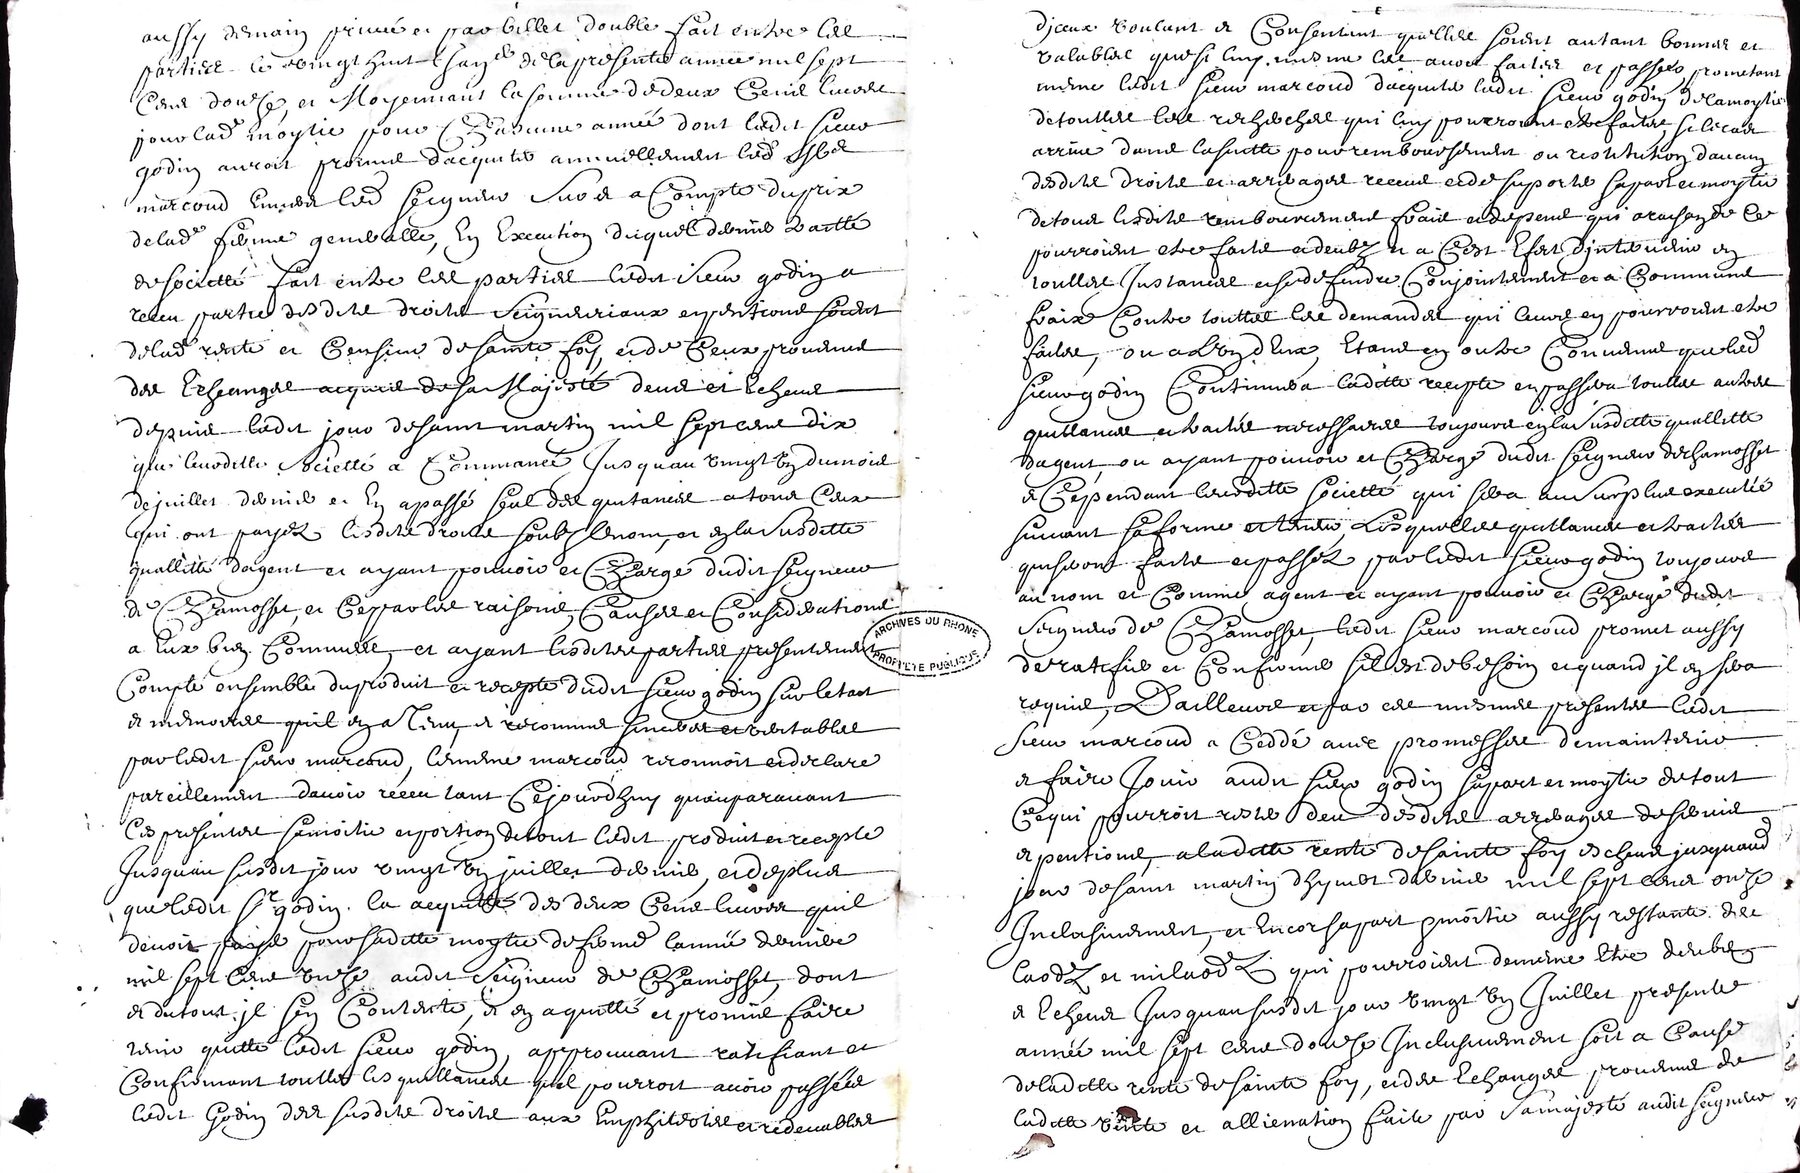 aussy demain privée et par billet double fait entre les
parties le vingt huit de la presente année mil sept
cens douze, et Moyennant la somme de deux Cens livres
pour lad.e moytie pour Chascune année dont ledit sieur
godin auroit promis dacquiter annuellement led. sr
marcoud Envers led seigneur Sur et a Compte du prix
de lad.e ferme generalle, En Execution duquel dernier traitté
de societté fait entre les parties ledit sieur godin a
receu partie desdits droits Seigneuriaux en pentions soient
de lad.e rente et Censive de sainte foy, et de Ceux provenus
des Eschanges acquis de sa Majesté deus et Echeus
depuis ledit jour de saint martin mil sept cens dix
que laditte Societté a Commancé Jusquau vingt un du mois
de juillet dernier et En a passé seul des quitances a tous Ceux
qui ont payez lesdits droits soubz le nom, et en la Susditte
quallitté dagent et ayant pouvoir et Charge dudit seigneur
de Chamosset, et Ce par les raisons, Causes et Considerations
a Eux bien Connues, et ayant lesdites parties presentement
Compté ensemble du produit et recepte dudit sieur godin sur létat
et memoires quil en a Tenu, et reconnus sinceres et veritables
par ledit sieur marcoud, le meme marcoud reconnoit et declare
pareillement davoir receu tant Cejourdhuy quauparavant
Ces presentes sa moitie et portion de tout ledit produit et recepte
Jusquau susdit jour vingt un juillet dernier, et de plus
que ledit Sr godin la acquitté des deux Cens livres quil
devoit faire pour saditte moytie de ferme lannée derniere
mil sept Cens onze audit Seigneur de Chamosset, dont
et du tout il sen Contente, et en a quitté et promis faire
tenir quitte ledit sieur godin, approuvant ratiffiant et
Confirmant touttes les quittances quil pourroit avoir passées
ledit Godin des susdits droits aux Emphiteotes et redevables
dyceux voulant et Consentant quelles soient autant bonnes et
valables que si luy mesme les avoit faites et passées prometant
même ledit sieur marcoud dacquiter ledit sieur godin de la moytie
de touttes les recherches qui luy pourroient etre faites, si le cas
arrive dans la suitte pour remboursement ou restitution daucun
desdits droits et arrerages receus et de suporter sa part et moytie
de tous lesdits remboursement frais et depens qui a raison de Ce
pourroient etre faits et deubz et a Cest Effet dintervenir en
touttes Instances et se deffendre Conjointement et a Communs
fraix Contre touttes les demandes qui leurs en pourroient etre
faites, ou a Lun dEux, Etant en outre Convenus que led
sieur godin Continuera laditte recepte en passera touttes autres
quittances et traités necessaires toujours en la Susditte quallitté
dagent ou ayant pouvoir et Charge dudit seigneur de Chamosset
et Cependant laditte societté qui sera au Surplus executée
suivant sa forme et teneur, Lesquelles quittances et traités
qui seront faits et passez par ledit sieur godin toujours
au nom et Comme agent et ayant pouvoir et Charge dudit
Seigneur de Chamosset, ledit sieur marcoud promet aussy
de ratifier et Confirmer sil est de besoin et quand il en sera
requis, Dailleurs et par ces mesmes presentes ledit
Sieur marcoud a Ceddé avec promesses de maintenir
et faire Jouir audit sieur godin sa part et moytie de tout
Ce qui pourroit rester deu desdits arrerages de servis
et pentions, a laditte rente de sainte foy echeus jusquaud
jour de saint martin dhyver dernier mil sept cens onze
Inclusivement, et Encor sa part et moitie aussy restante des
laodz et milaodz qui pourroient de même Etre deubz
et Echeus Jusquau susdit jour vingt un Juillet presente
année mil sept cens douze Inclusivement soit a Cause
de laditte rente de sainte foy, et des Echanges provenus de
laditte vente et allienation faite par sa majesté audit seigneur
ARCHIVES DU RHONE
PROPRIETE PUBLIQUE